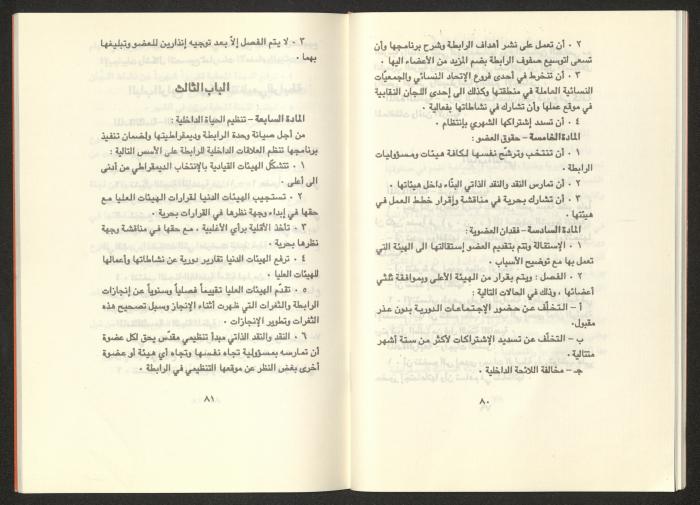 ٢ ٠ أن تعمل على نشر أهداف الرابطة وشرح برنامجها وأن
تسعى لتوسيع صفوف الرابطة بضم المزيد من الأعضاء اليها ٠
٣ ٠ أن تنخرط في احدى فروع الإتحاد النسائي والجمعيّات
النسائية العاملة في منطقتها وكذلك الى احدى اللجان النقابية
في موقع عملها وأن تشارك في نشاطاتها بفعالية ٠
٤ ٠ أن تسدد إشتراكها الشهري بإنتظام ٠
المادة الخامسة – حقوق العضو :
١ ٠ أن تنتخب وترشّح نفسها لكافة هيئات ومسؤوليات
الرابطة ٠
٢ ٠ أن تمارس النقد والنقد الذاتي البنّاء داخل هيئاتها ٠
٣ ٠ أن تشارك بحرية في مناقشة وإقرار خطط العمل في
هيئتها ٠
المادة السادسة – فقدان العضوية :
١ ٠ الإستقالة وتتم بتقديم العضو إستقالتها الى الهيئة التي
تعمل بها مع توضيح الأسباب ٠
٢ ٠ الفصل : ويتم بقرار من الهيئة الأعلى وبموافقة ثلثي
أعضائها ، وذلك في الحالات التالية :
أ – التخلّف عن حضور الإجتماعات الدورية بدون عذر
مقبول.
ب – التخلّف عن تسديد الإشتراكات لأكثر من ستة أشهر
متتالية ٠
جـ – مخالفة اللائحة الداخلية ٠
٨٠
٣ ٠ لا يتم الفصل إلاّ بعد توجيه إنذارين للعضو وتبليغها
بهما ٠
الباب الثالث
المادة السابعة – تنظيم الحياة الداخلية :
من أجل صيانة وحدة الرابطة وديمقراطيتها ولضمان تنفيذ
برنامجها تنظم العلاقات الداخلية للرابطة على الأسس التالية :
١ ٠ تتشكّل الهيئات القيادية بالإنتخاب الديمقراطي من أدنى
الى أعلى ٠
٢ ٠ تستجيب الهيئات الدنيا لقرارات الهيئات العليا مع
حقها في إبداء وجهة نظرها في القرارات بحرية ٠
٣ ٠ تأخذ الأقلية برأي الأغلبية ، مع حقها في مناقشة وجهة
نظرها بحرية ٠
٤ ٠ ترفع الهيئات الدنيا تقارير دورية عن نشاطاتها وأعمالها
للهيئات العليا ٠
٥ ٠ تقدّم الهيئات العليا تقييماً فصلياً وسنوياً عن إنجازات
الرابطة والثغرات التي ظهرت أثناء الإنجاز وسبل تصحيح هذه
الثغرات وتطوير الإنجازات ٠
٦ ٠ النقد والنقد الذاتي مبدأ تنظيمي مقدّس يحق لكل عضوة
أن تمارسه بمسؤولية تجاه نفسها وتجاه أي هيئة أو عضوة
أخرى بغض النظر عن موقعها التنظيمي في الرابطة ٠
٨١